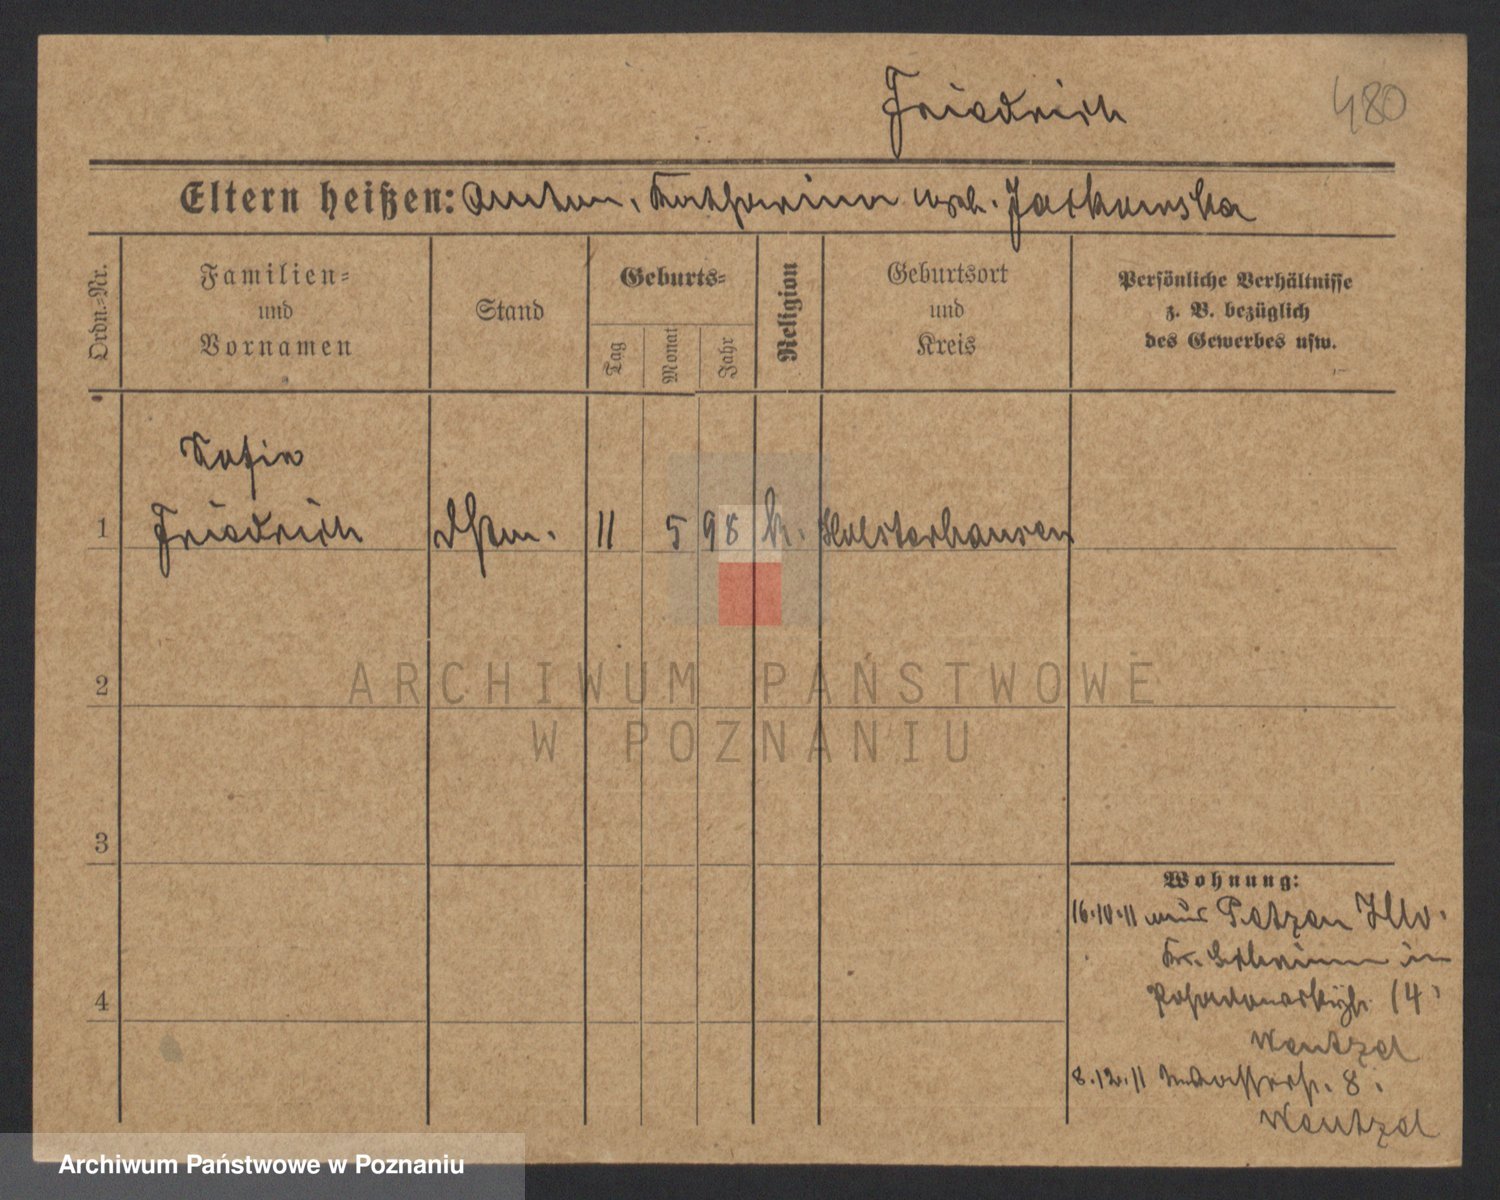 Friedrich 480
Eltern heißen: Anton, Katharina geb. Jackowska
Ordn.-Nr.
Familien-
und
Vornamen
Stand
Geburts-
Tag
Monat
Jahr
Religion
Geburtsort
und
Kreis
Persönliche Verhältnisse
z. B. bezüglich
des Gewerbes usw.
Sofie
1 Friedrich 11 5 98 k. Holsterhausen
2
3
4
Wohnung:
16.10.11 aus
in
14.
8.12.11 8.
ARCHIWUM PAŃSTWOWE
W POZNANIU
Archiwum Państwowe w Poznaniu